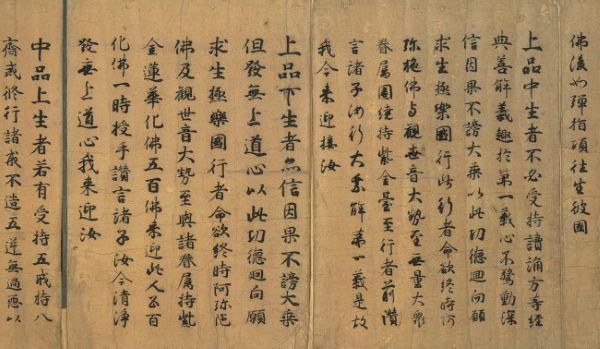 佛後如弾指頃往生彼國
上品中生者不必受持讀誦方等經
典善解義趣於第一義心不驚動深
信因果不謗大乗以此功德迴向願
求生極樂國行此行者命欲終時阿
弥陁佛与觀世音大勢至無量大衆
眷属圍繞持紫金臺至行者前讃
言諸子汝行大乗解第一義是故
我今来迎接汝
上品下生者亦信因果不謗大乗
但發無上道心以此功德迴向願
求生極樂國行者命欲終時阿弥陁
佛及觀世音大勢至與諸眷属持紫
金蓮華化佛五百佛来迎此人五百
化佛一時授手讃言諸子汝今清淨
發無上道心我来迎汝
中品上生者若有受持五戒持八
齋戒修行諸戒不造五逆無過患以